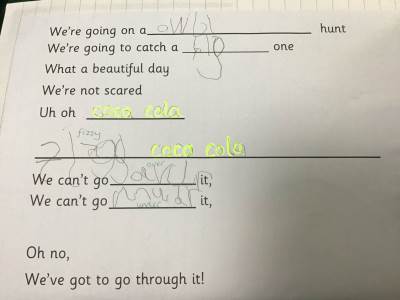 We're going on a owl hunt
We're going to catch a big one
What a beautiful day
We're not scared
Uh oh coca cola
fizzy
coca cola
We can't go over it,
We can't go under it,
Oh no,
We've got to go through it!